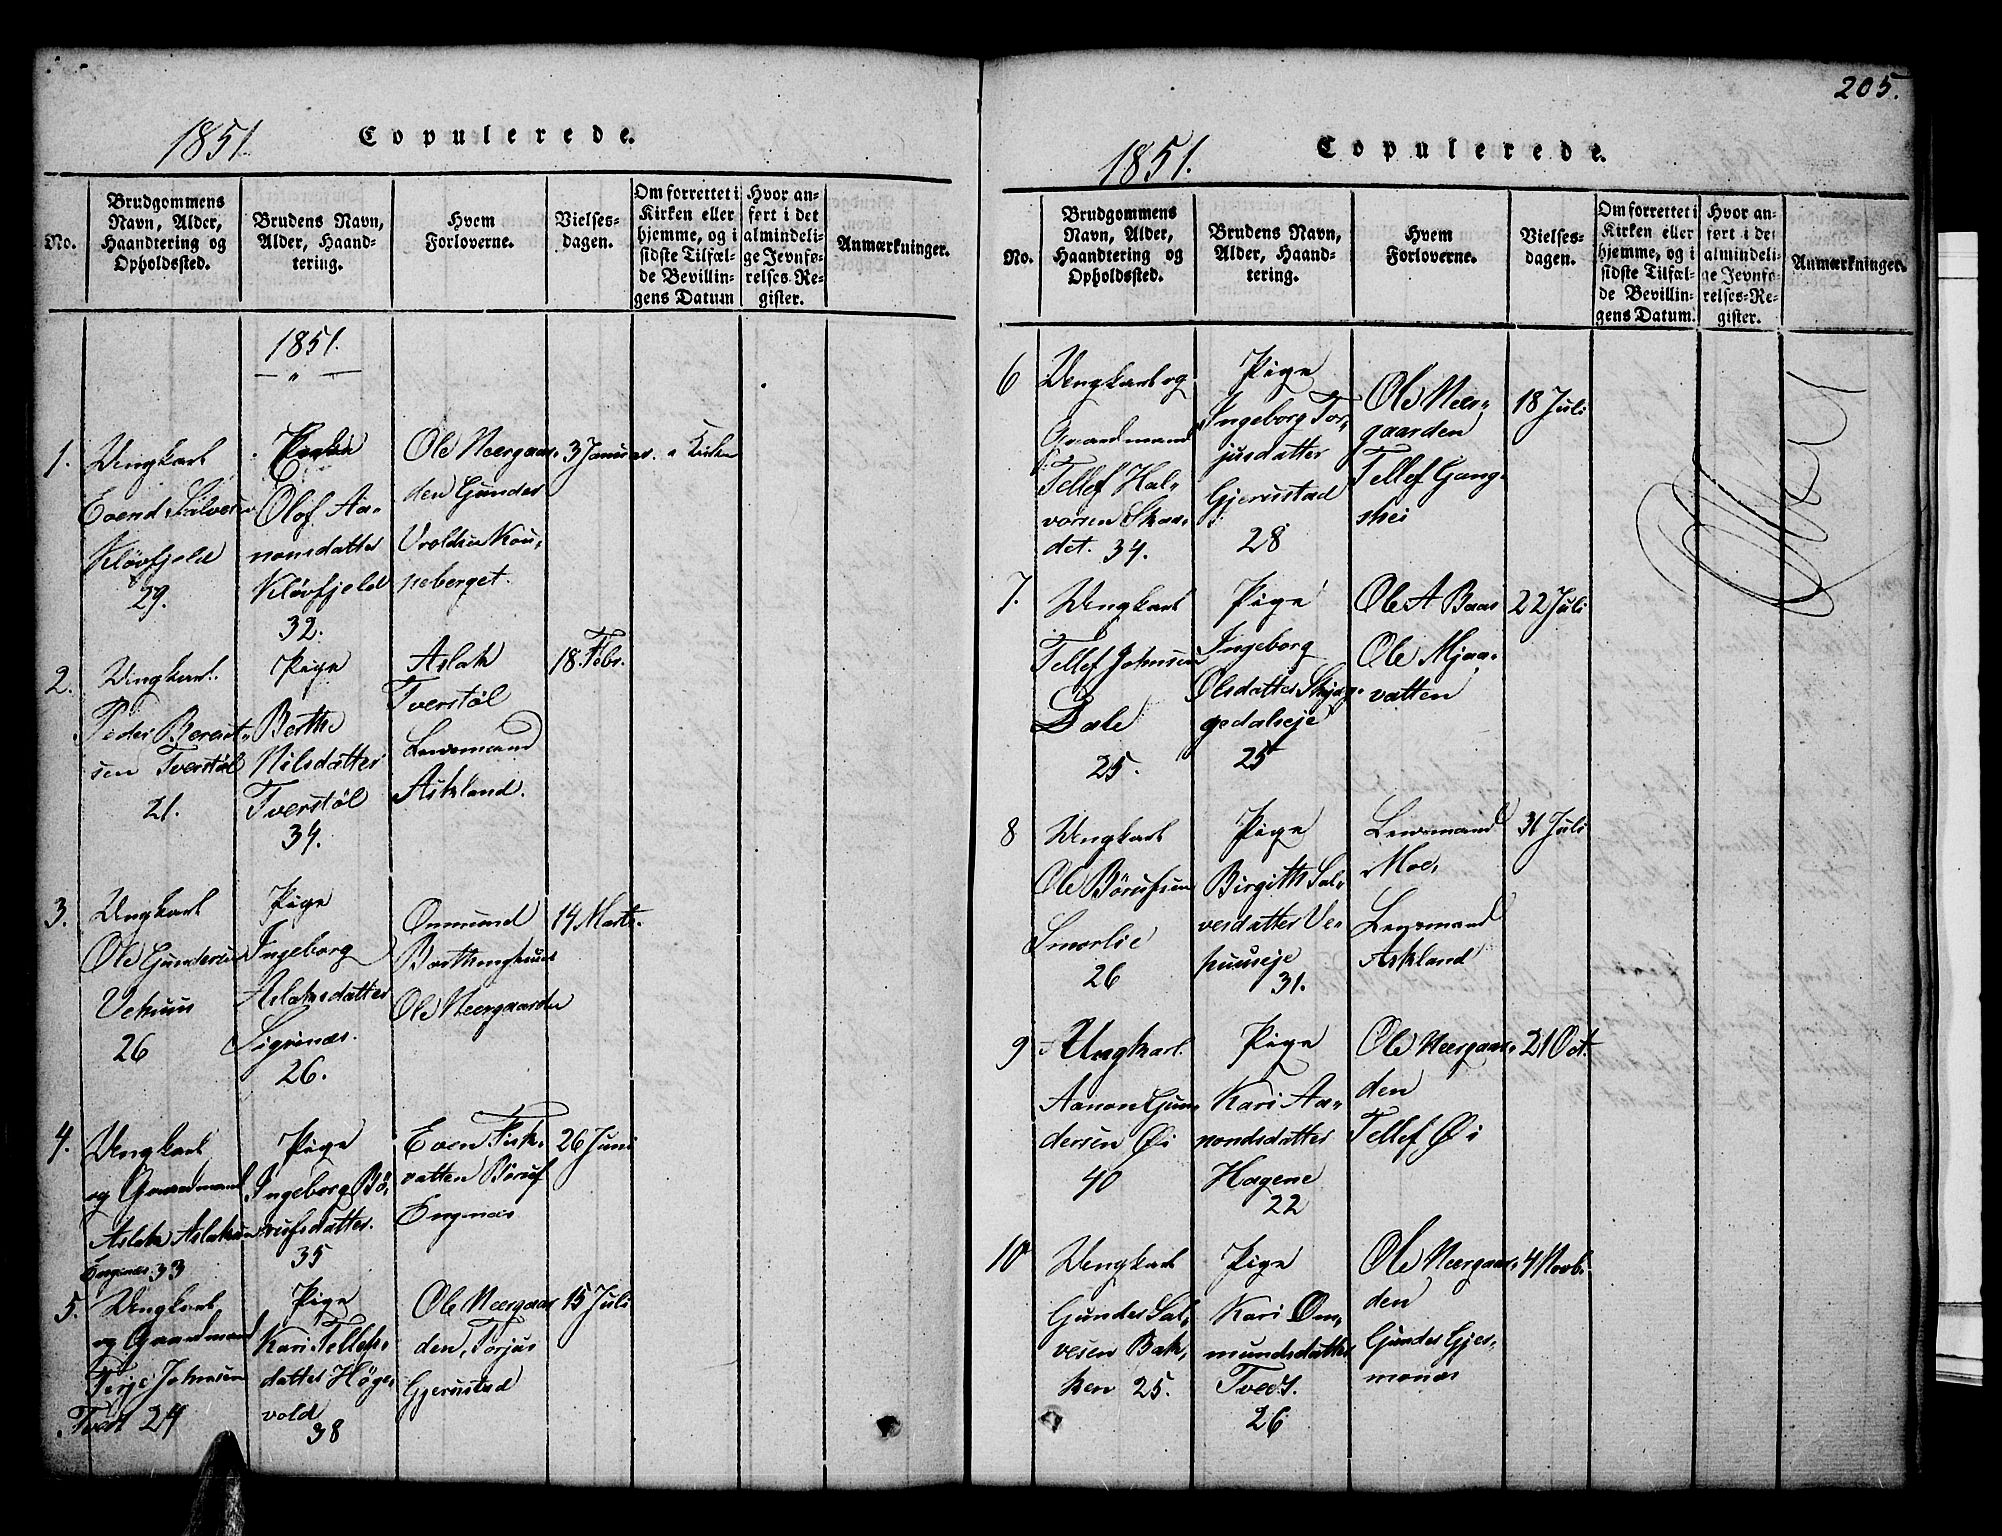 205.
1851.
Copulerede.
No.
Brudgommens
Navn, Alder,
Haandtering og
Opholdssted.
Brudens Navn,
Alder, Haand-
tering.
Hvem
Forloverne.
Vielses-
dagen.
Om forrettet i
Kirken eller
hjemme, og i
sidste Tilfæl-
de Bevillin-
gens Datum
Hvor an-
ført i det
almindeli-
ge Jevnfø-
relses-Re-
gister.
Anmærkninger.
1851.
"
1.
Ungkarl
Evend Salvesen
Kløvfjeld
29.
Olof Aa-
nonsdatter
Kløvfjeld
32.
Ole Neergaar-
den Gunder
Uroldsen
peberget.
3 Januar.
i Kirken
2.
Ungkarl.
Peder Berent-
sen Tverstøl
21.
Pige
Berthe
Nilsdatter
Tverstøl
34.
Aslak
Tverstøl
Lensmand
Askland.
18. Febr.
3.
Ungkarl
Ole Gundersen
Vehuus
26
Pige
Ingeborg
Aslaksdatter
Sigrinæs.
26.
Onmund
Ole Neergaarden
14 Marts.
4.
Ungkarl
og Gaardmand
Aslak Aslaksen
Engenæs. 33
Pige
Ingeborg Bø-
rufsdatter.
35
Even Fisk-
vatten Børuf
Engenæs
26 Juni
5.
Ungkarl
og Gaardmand
Terje Johnsen
Tvert 24
Pige
Kari Tellefs-
datter Høge-
vold
38
Ole Neergaar-
den, Torjus
Gjerustad
15 Juli
1851.
Copulerede.
No.
Brudgommens
Navn, Alder,
Haandtering og
Opholdssted.
Brudens Navn,
Alder, Haand-
tering.
Hvem
Forloverne.
Vielses-
dagen.
Om forrettet i
Kirken eller
hjemme, og i
sidste Tilfæl-
de Bevillin-
gens Datum.
Hvor an-
ført i det
almindeli-
ge Jevnfø-
relses-Re-
gister.
Anmærkninger.
6
Ungkarl og
Gaardmand
Tellef Hal-
vorsen Skaa-
det. 34.
Pige
Ingeborg Tor-
jusdatter
Gjerustad
28
Ole Neer-
gaarden
Tellef Gang-
shei
18 Juli
7.
Ungkarl
Tellef Johnsen
Dale
25.
Pige
Ingeborg
Olsdatter Skjeg-
gedalseje
25
Ole A Baas
Ole Mjaa-
vatten
22 Juli
8
Ungkarl
Ole Børufsen
Smorlie
26
Pige
Birgithe Sal-
vesdatter Ve-
huuseje
31.
Lensmand
Moe,
Lensmand
Askland
31 Juli
9
Ungkarl.
Aanon Gun-
dersen Øi
40
Pige
Kari Aa-
nondsdatter
Hagene
22
Ole Neergaar-
den
Tellef Øi
21 Oct.
10
Ungkarl
Gunder Sal-
vesen Bak-
ken 25.
Pige
Kari Om-
mundsdatter
Tvedt.
26
Ole Neergaar-
den
Gunder Gjer-
monæs
4 Novb.